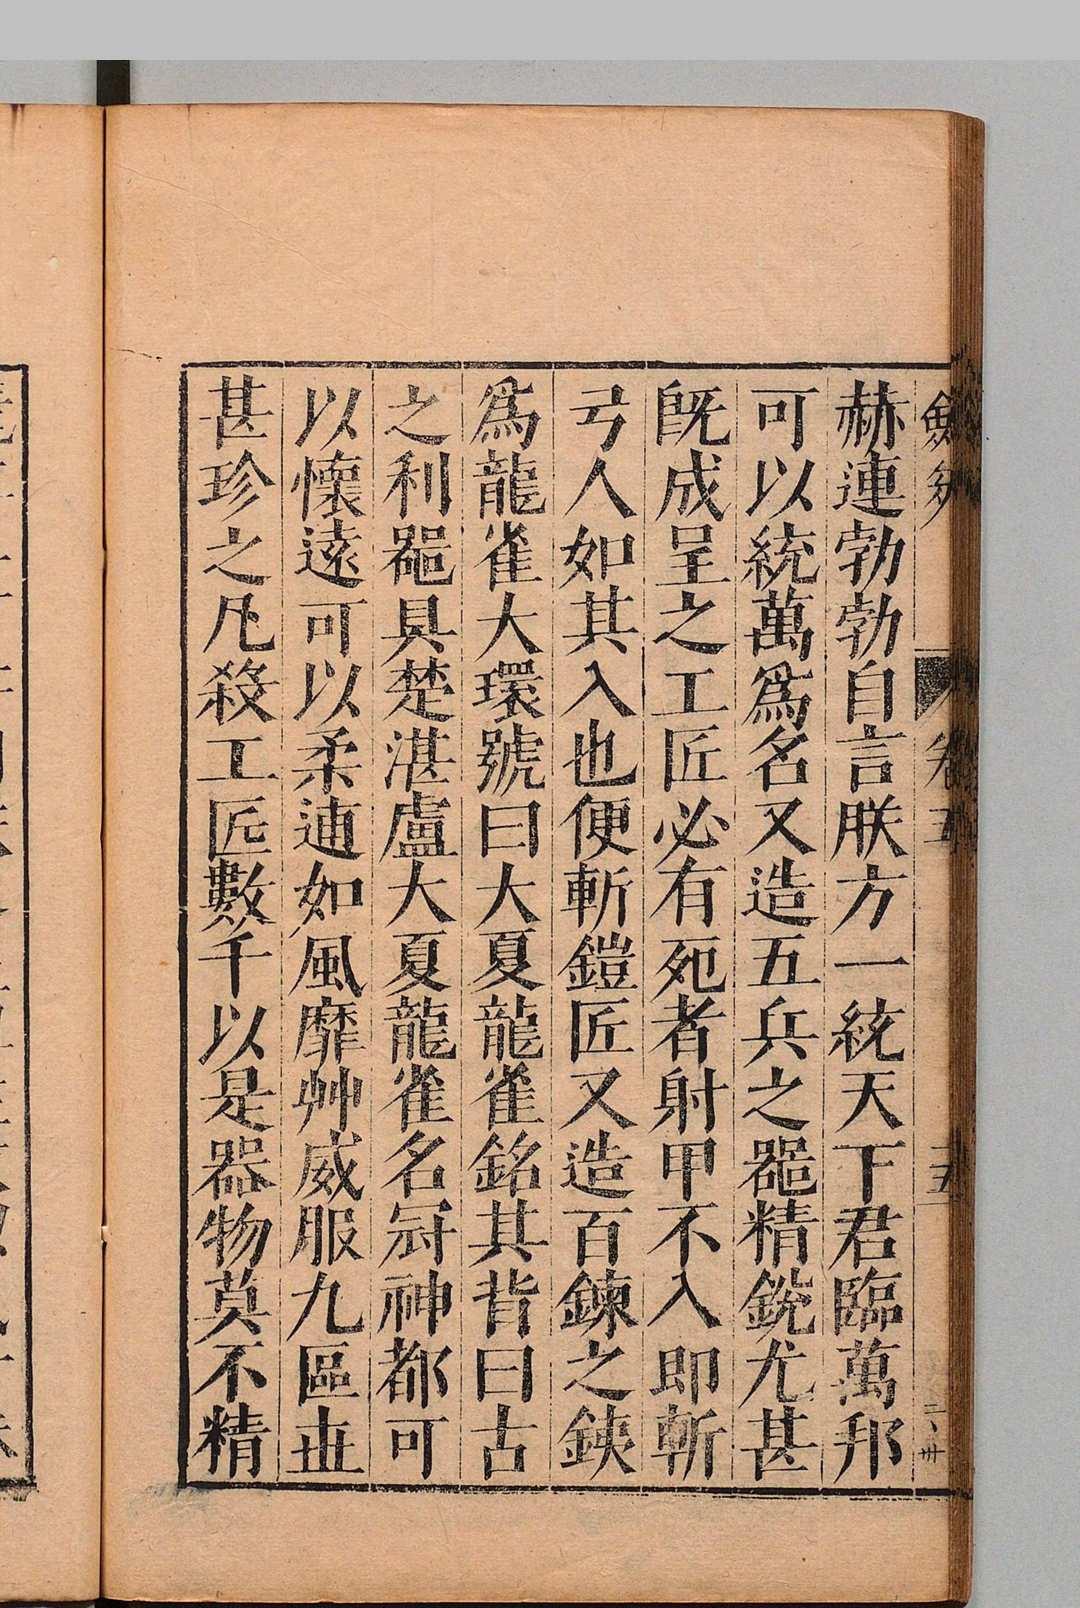 赫連勃勃自言朕方一統天下君臨萬邦
可以統萬爲名又造五兵之噐精銳尤甚
旣成呈之工匠必有死者射甲不入即斬
弓人如其入也便斬鎧匠又造百鍊之鋏
爲龍雀大環號曰大夏龍雀銘其背曰古
之利噐具楚湛盧大夏龍雀名冠神都可
以懷遠可以柔逋如風靡艸威服九區丗
甚珍之凡殺工匠數千以是器物莫不精